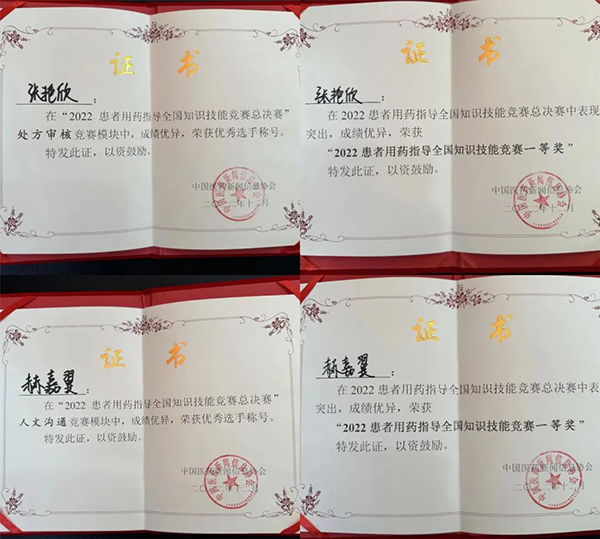 证 书
张艳欣：
在“2022 患者用药指导全国知识技能竞赛总决赛”
处方审核竞赛模块中，成绩优异，荣获优秀选手称号。
特发此证，以资鼓励。
中国医药新闻信息协会
二〇二二年十二月
证 书
张艳欣：
在2022患者用药指导全国知识技能竞赛总决赛中表现
突出，成绩优异，荣获
“2022患者用药指导全国知识技能竞赛一等奖”
特发此证，以资鼓励。
中国医药新闻信息协会
二〇二二年十二月
证 书
赫嘉翼：
在“2022 患者用药指导全国知识技能竞赛总决赛”
人文沟通竞赛模块中，成绩优异，荣获优秀选手称号。
特发此证，以资鼓励。
中国医药新闻信息协会
二〇二二年十二月
证 书
赫嘉翼：
在2022患者用药指导全国知识技能竞赛总决赛中表
突出，成绩优异，荣获
“2022患者用药指导全国知识技能竞赛一等奖”
特发此证，以资鼓励。
中国医药新闻信息协会
二〇二二年十二月